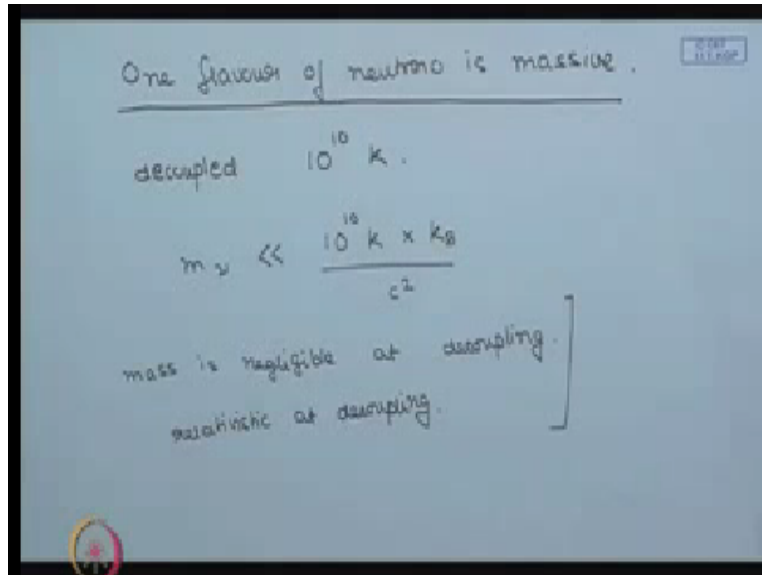 One flavour of neutrino is massive.
decoupled 10^10 K.
m_ν << 10^10 K × k_B / c^2
mass is negligible at decoupling.
relativistic at decoupling.